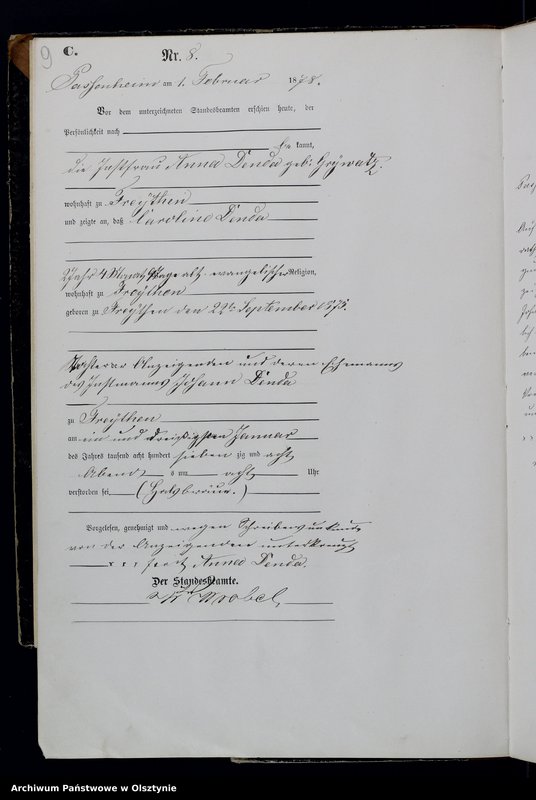 9
C.
Nr. 8.
Passenheim am 1. Februar 1878.
Vor dem unterzeichneten Standesbeamten erschien heute, der
Persönlichkeit nach
kannt,
die Instfrau Anna Denda geb. Grywatz.
wohnhaft zu Freythen
und zeigte an, daß Caroline Denda
2 Jahr 4 Monat 9 Tage alt, evangelischer Religion,
wohnhaft zu Freythen
geboren zu Freythen den 22ten September 1875.
Tochter der Anzeigenden und deren Ehemanns
des Instmanns Johann Denda
zu Freythen
am ein und dreißigsten Januar
des Jahres tausend acht hundert sieben zig und acht
Abends um acht Uhr
verstorben sei (Halsbräune.)
Vorgelesen, genehmigt und wegen Schreibensunkunde
von der Anzeigenden unterkreuzt
x x x Anna Denda
Der Standesbeamte.
Wrobel
Archiwum Państwowe w Olsztynie